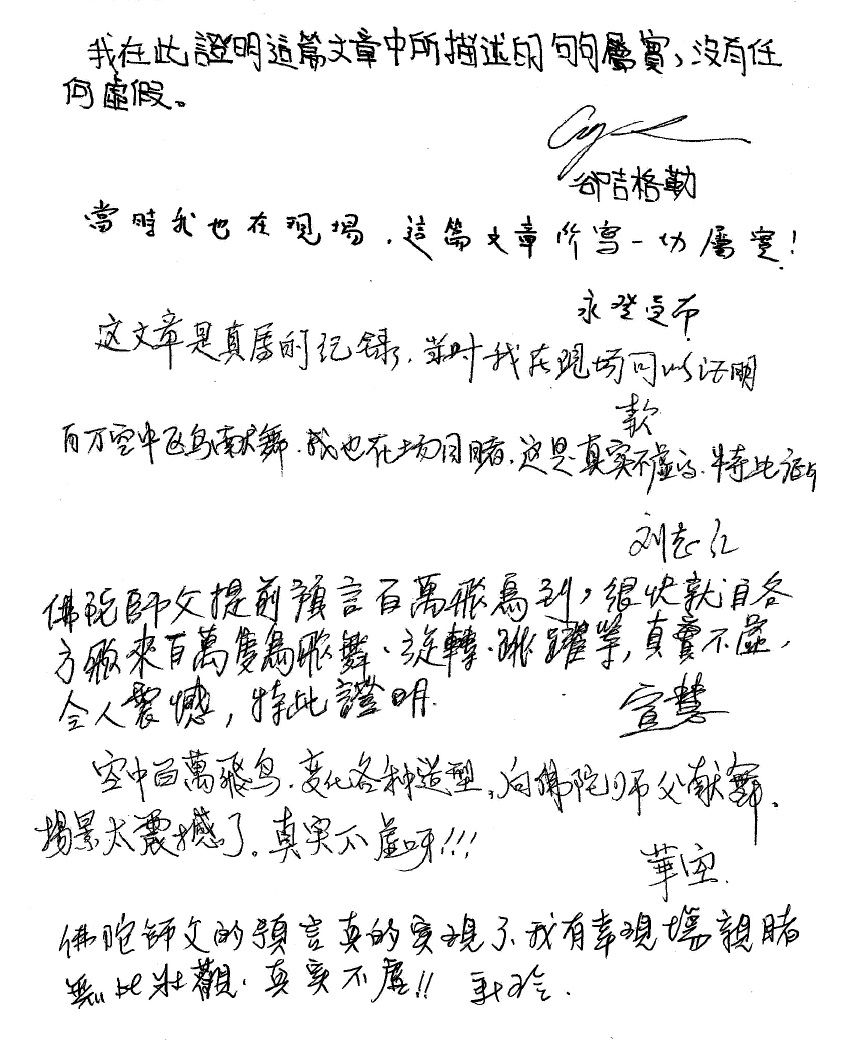 我在此證明這篇文章中所描述的句句屬實，沒有任
何虛假。
卻吉格勒
當時我也在現場，這篇文章所寫一切屬實！
永登受布
这文章是真房的记录，当时我在現场可以证明
款
百万空中飞鸟献舞，我也在场目睹，这是真实不虚的，特此证明
刘志江
佛陀師父提前預言百萬飛鳥到，很快就自各
方飛來百萬隻鳥飛舞、旋轉、跳躍等，真實不虛，
令人震憾，特此證明.
宣慧
空中百萬飛鸟，变化各种造型，向佛陀师父献舞.
場景太震撼了。真实不虚呀!!!
華空.
佛陀師父的預言真的實現了、我有幸現場親睹
無比壯觀，真實不虛!!